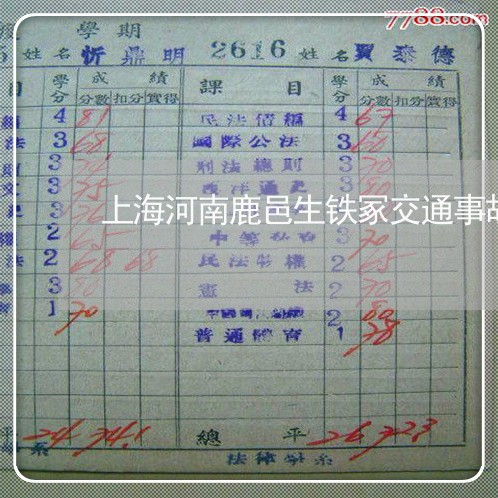 7788.com
學期
姓名 忻鼎明 2616 姓名 賈泰德
目 學分 成績 課目 學分 成績
分數 扣分 實得 分數 扣分 實得
4 81 民法債編 4 67
法 3 68 國際公法 3 60
3 刑法總則 3 70
3 75 西洋通史 3 80
上海河南鹿邑生铁冢交通事故
2 65 3 70
法 2 68 68 民法物權 2 65
3 80 憲法 2 70
1 70 2 80
普通體育 1 78
24 74.1 總平 26 72.3
系 法律學系